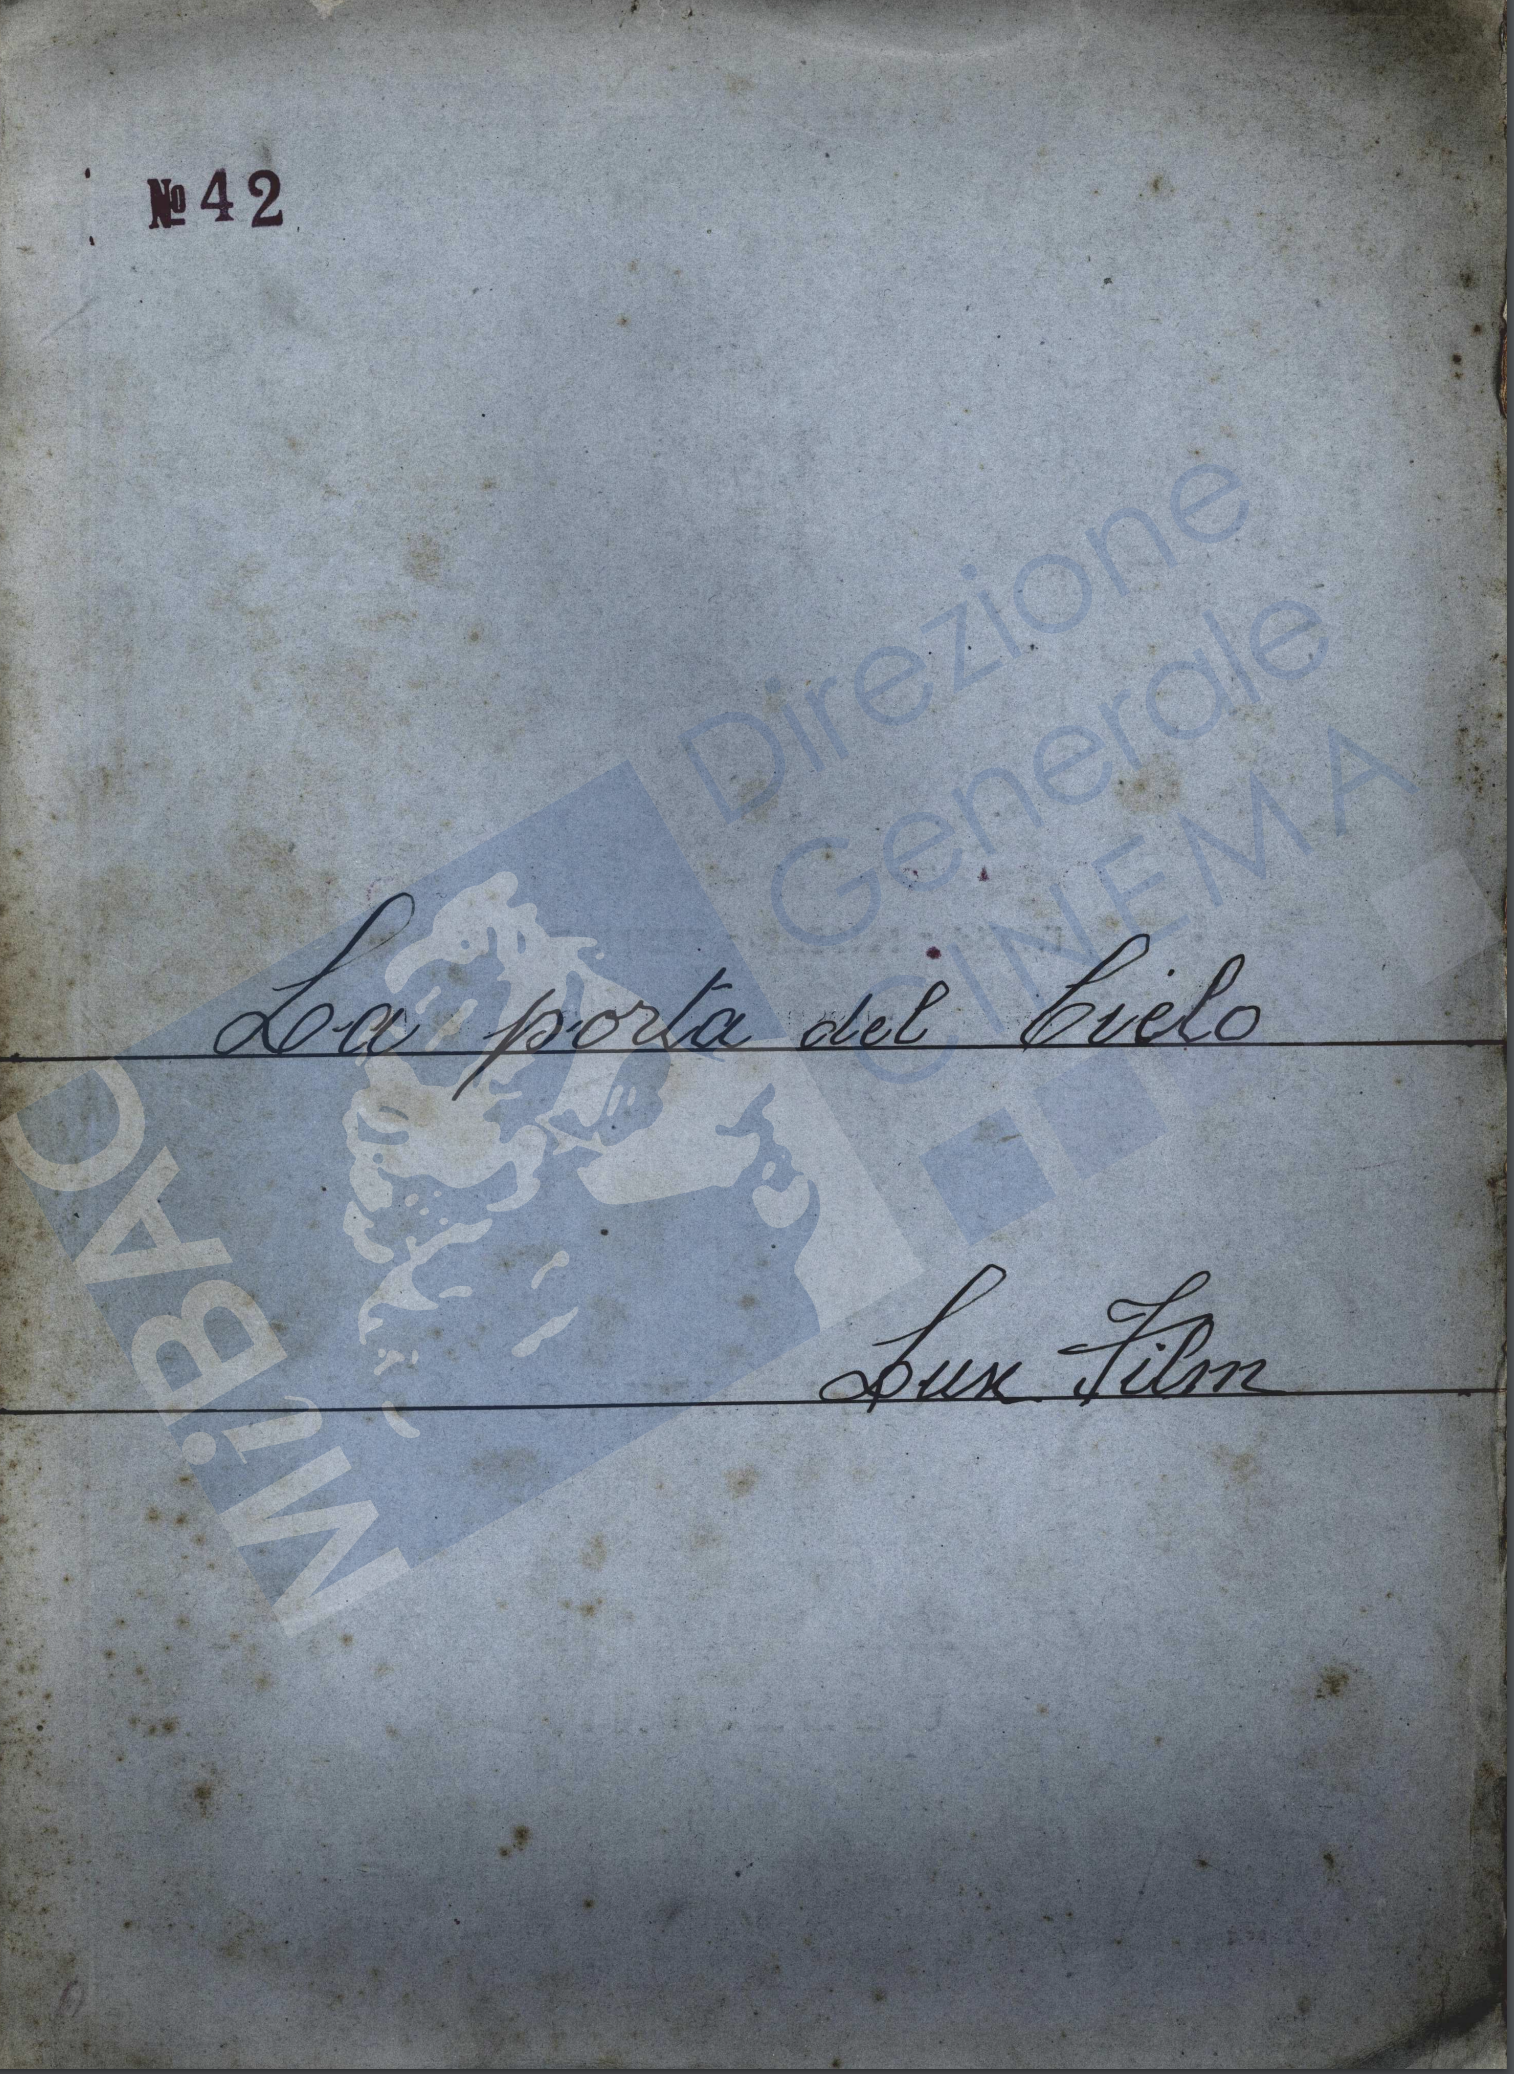 № 42
Direzione
Generale
CINEMA
La porta del Cielo
MiBAC
Lux Film